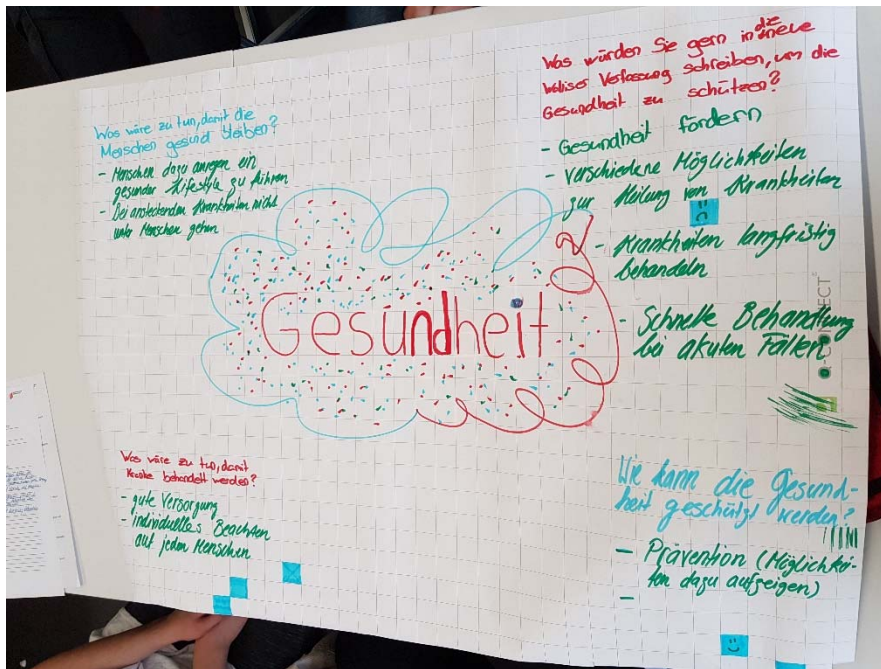 Was wäre zu tun, damit die
Menschen gesund bleiben?
- Menschen dazu anregen ein
gesunder Lifestyle zu führen
- Bei ansteckenden Krankheiten nicht
unter Menschen gehen
Was würden Sie gern in die neue
Walliser Verfassung schreiben, um die
Gesundheit zu schützen?
- Gesundheit fördern
- verschiedene Möglichkeiten
zur Heilung von Krankheiten
- Krankheiten langfristig
behandeln
- Schnelle Behandlung
bei akuten Fällen
Gesundheit
Was wäre zu tun, damit
Kranke behandelt werden?
- gute Versorgung
- individuelles Beachten
auf jeden Menschen
Wie kann die Gesund-
heit geschützt werden?
- Prävention (Möglichkei-
ten dazu aufzeigen)
-